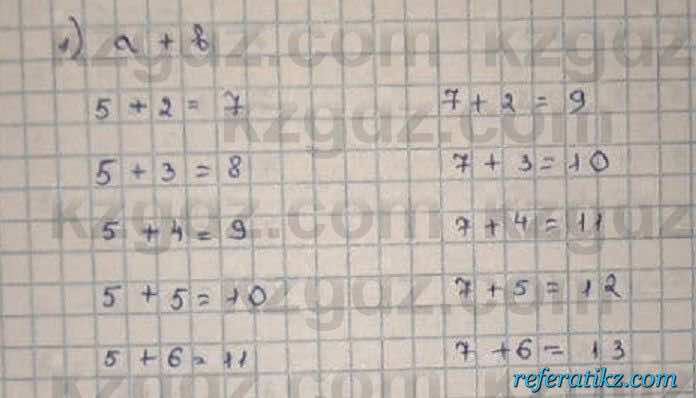 1) a + b
5 + 2 = 7 7 + 2 = 9
5 + 3 = 8 7 + 3 = 10
5 + 4 = 9 7 + 4 = 11
5 + 5 = 10 7 + 5 = 12
5 + 6 = 11 7 + 6 = 13
kzgdz.com
referatikz.com